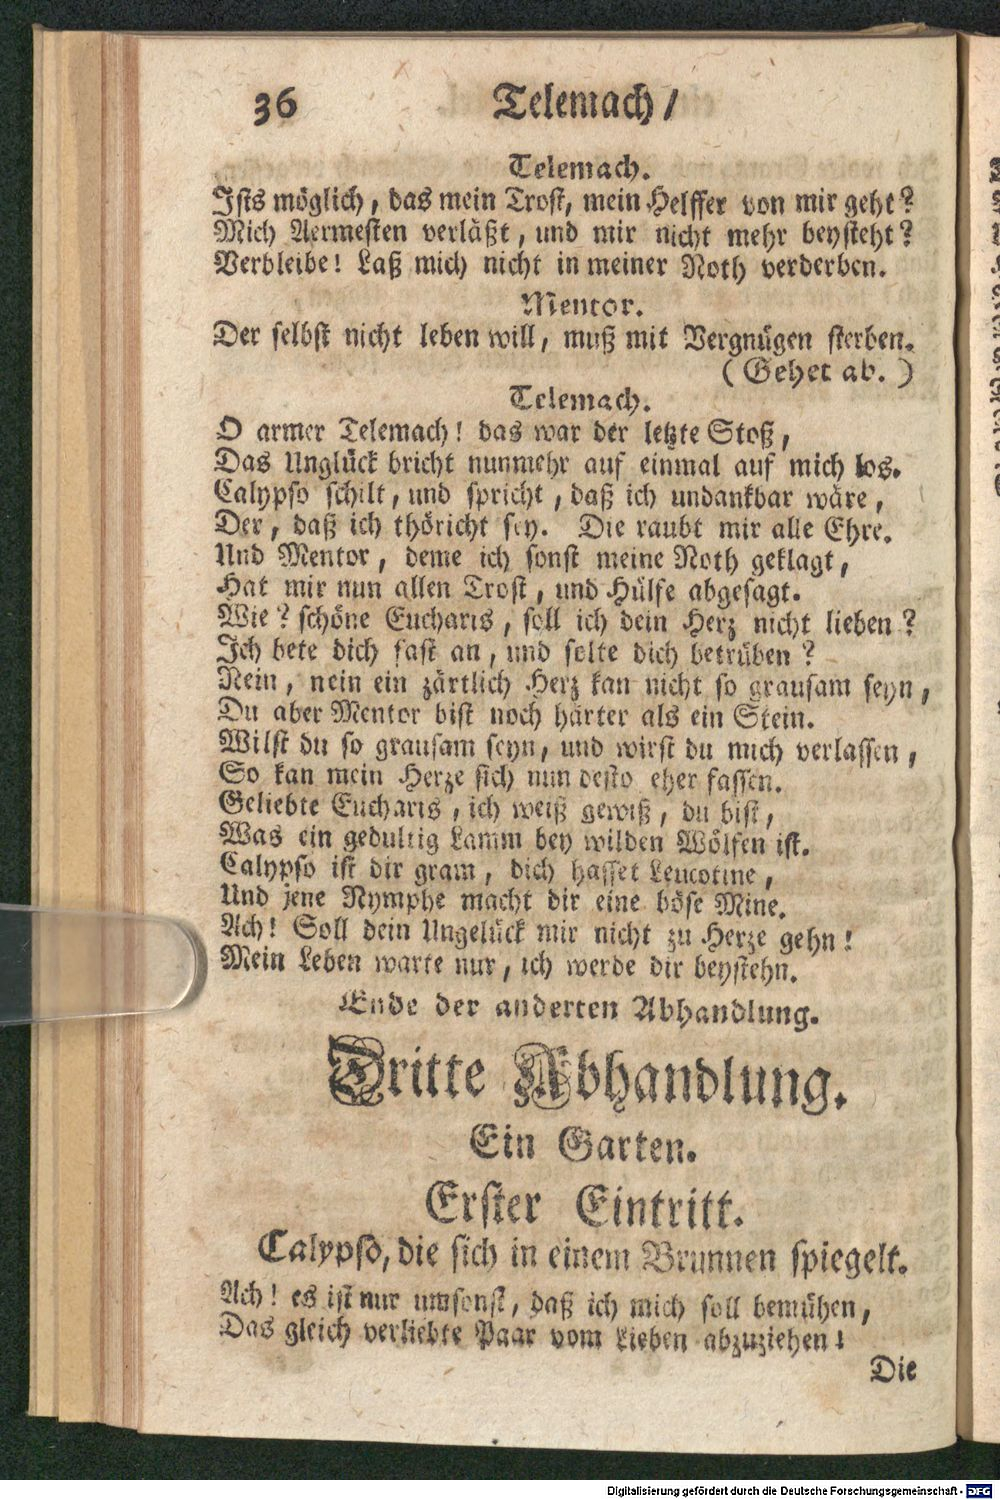 36 Telemach /
Telemach.
Ists möglich, das mein Trost, mein Helffer von mir geht?
Mich Aermesten verläßt, und mir nicht mehr beysteht?
Verbleibe! Laß mich nicht in meiner Noth verderben.
Mentor.
Der selbst nicht leben will, muß mit Vergnügen sterben.
(Gehet ab.)
Telemach.
O armer Telemach! das war der letzte Stoß,
Das Unglück bricht nunmehr auf einmal auf mich los.
Calypso schilt, und spricht, daß ich undankbar wäre,
Der, daß ich thöricht sey. Die raubt mir alle Ehre.
Und Mentor, deme ich sonst meine Noth geklagt,
Hat mir nun allen Trost, und Hülfe abgesagt.
Wie? schöne Eucharis, soll ich dein Herz nicht lieben?
Ich bete dich fast an, und solte dich betrüben?
Nein, nein ein zärtlich Herz kan nicht so grausam seyn,
Du aber Mentor bist noch härter als ein Stein.
Wilst du so grausam seyn, und wirst du mich verlassen,
So kan mein Herze sich nun desto eher fassen.
Geliebte Eucharis, ich weiß gewiß, du bist,
Was ein gedultig Lamm bey wilden Wölfen ist.
Calypso ist dir gram, dich hasset Leucotine,
Und jene Nymphe macht dir eine böse Mine.
Ach! Soll dein Ungelück mir nicht zu Herze gehn!
Mein Leben warte nur, ich werde dir beystehn.
Ende der anderten Abhandlung.
Dritte Abhandlung.
Ein Garten.
Erster Eintritt.
Calypso, die sich in einem Brunnen spiegelt.
Ach! es ist nur umsonst, daß ich mich soll bemühen,
Das gleich verliebte Paar vom Lieben abzuziehen!
Die
Digitalisierung gefördert durch die Deutsche Forschungsgemeinschaft - DFG